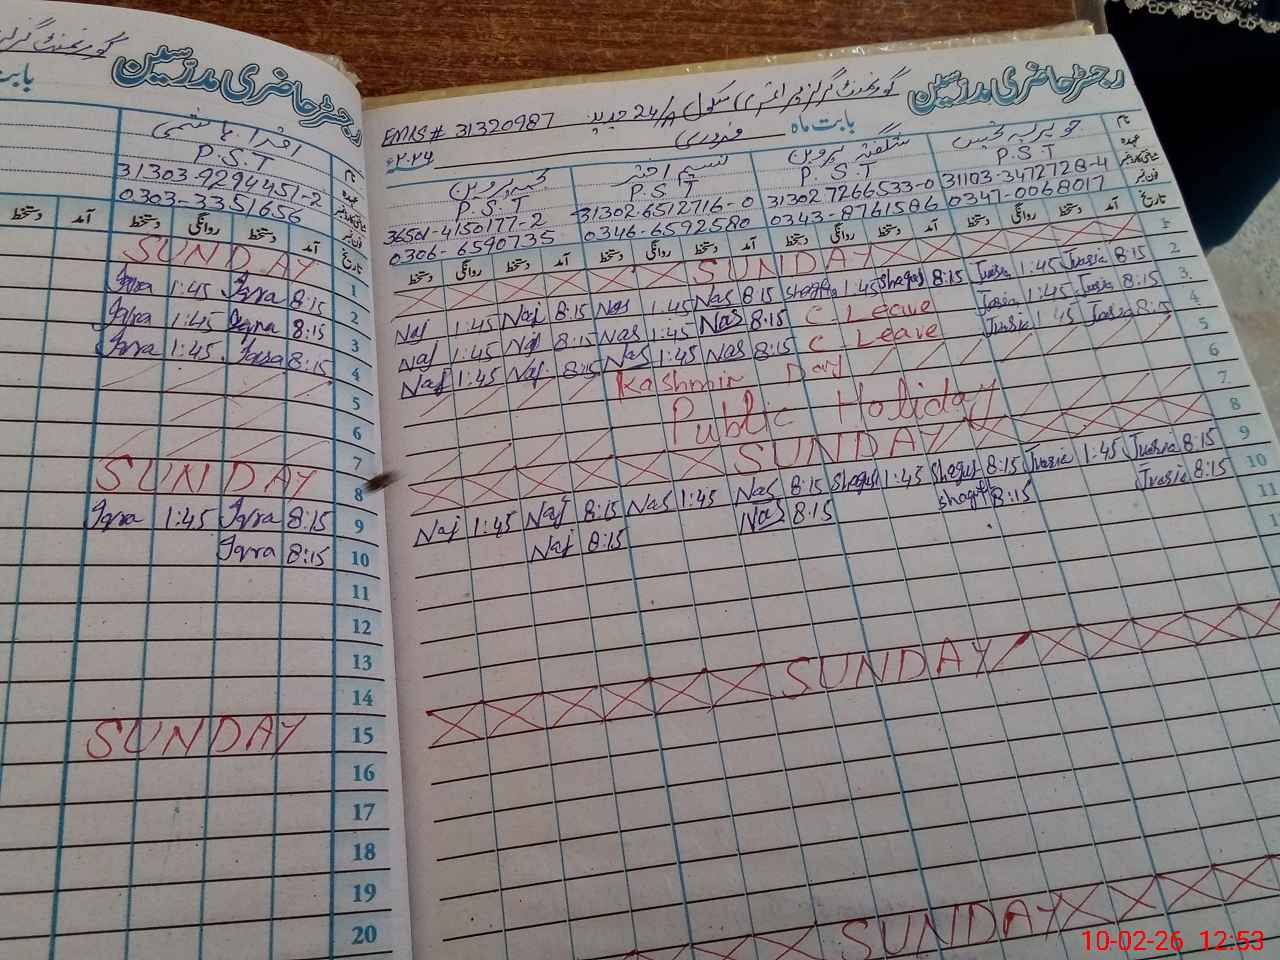 رجسٹر حاضری مدرسین
گورنمنٹ گرلز پرائمری سکول 24/A جدید EMIS# 31320987
بابت ماہ فروری
نام
اقراء ہاشمی
P.S.T
31303-9294451-2
0303-3351656
جویریہ
P.S.T
31103-3472728-4
0347-0068017
شگفتہ پروین
P.S.T
31302-7266533-0
0343-8761586
نسیم اختر
P.S.T
31302-6512716-0
0346-6592580
نجمہ پروین
P.S.T
36501-4150177-2
0306-6590735
تاریخ آمد دستخط روانگی دستخط آمد دستخط
1 SUNDAY
2 8:15 Iqra 1:45 Iqra
3 8:15 Iqra 1:45 Iqra
4 8:15 Iqra 1:45 Iqra
5
6
7
8 SUNDAY
9 8:15 Iqra 1:45 Iqra
10 8:15 Iqra
11
12
13
14
15 SUNDAY
16
17
18
19
20
رجسٹر حاضری مدرسین
تاریخ آمد دستخط روانگی دستخط آمد دستخط روانگی دستخط آمد دستخط روانگی دستخط آمد دستخط روانگی دستخط
1 SUNDAY
2 Naj 1:45 Naj 8:15 Nas 1:45 Nas 8:15 Shaguf 1:45 Shaguf 8:15 Jvaria 1:45 Jvaria 8:15
3 Naj 1:45 Naj 8:15 Nas 1:45 Nas 8:15 C. Leave Jvaria 1:45 Jvaria 8:15
4 Naj 1:45 Naj 8:15 Nas 1:45 Nas 8:15 C Leave Jvaria 1:45 Jvaria 8:15
5 Kashmir Day
6 Public Holiday
7
8 SUNDAY
9 Naj 1:45 Naj 8:15 Nas 1:45 Nas 8:15 Shaguf 1:45 Shaguf 8:15 Jvaria 1:45 Jvaria 8:15
10 Naj 8:15 Nas 8:15 Shaguf 8:15 Jvaria 8:15
11
SUNDAY
SUNDAY
10-02-26 12:53